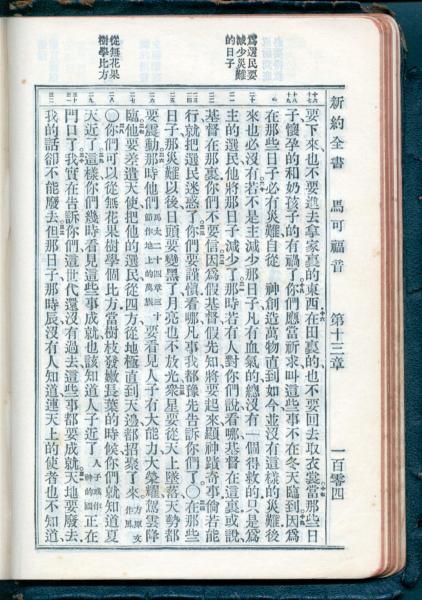 新約全書 馬可福音 第十三章 一百零四
爲選民要
減少災難
的日子
從無花果
樹學比方
要下來也不要進去拿家裏的東西在田裏的也不要回去取衣裳當那些日
子懷孕的和奶孩子的有禍了你們應當祈求叫這些事不在冬天臨到因爲
在那些日子必有災難自從 神創造萬物直到如今並沒有這樣的災難後
來也必沒有若不是主減少那日子凡有血氣的總沒有一個得救的只是爲
主的選民他將那日子減少了那時若有人對你們說看哪基督在這裏或說
基督在那裏你們不要信因爲假基督假先知將要起來顯神蹟奇事倘若能
行就把選民迷惑了你們要謹慎看哪凡事我都豫先告訴你們了○在那些
日子那災難以後日頭要變黑了月亮也不放光衆星要從天上墜落天勢都
要震動那時他們 馬太二十四章三十節作地上的萬族 要看見人子有大能力大榮耀駕雲降
臨他要差遣天使把他的選民從四方從地極直到天邊都招聚了來 方原文作風
○你們可以從無花果樹學個比方當樹枝發嫩長葉的時候你們就知道夏
天近了這樣你們幾時看見這些事成就也該知道人子近了 人子或作神的國 正在
門口了我實在告訴你們這世代還沒有過去這些事都要成就天地要廢去
我的話卻不能廢去但那日子那時辰沒有人知道連天上的使者也不知道